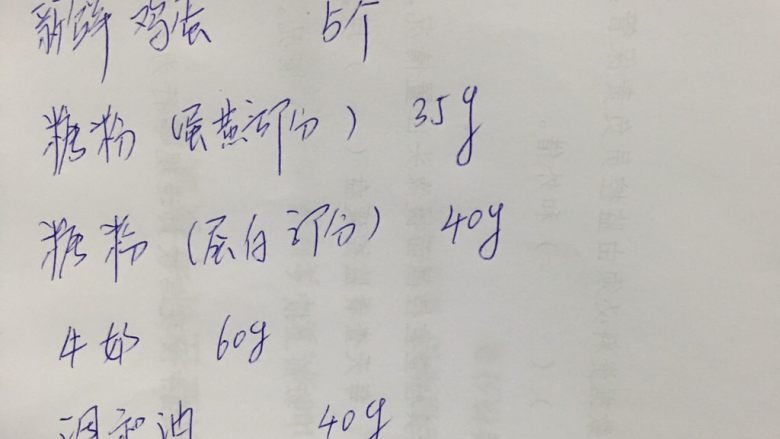 新鲜鸡蛋 5个
糖粉（蛋黄部分） 35g
糖粉（蛋白部分） 40g
牛奶 60g
调和油 40g